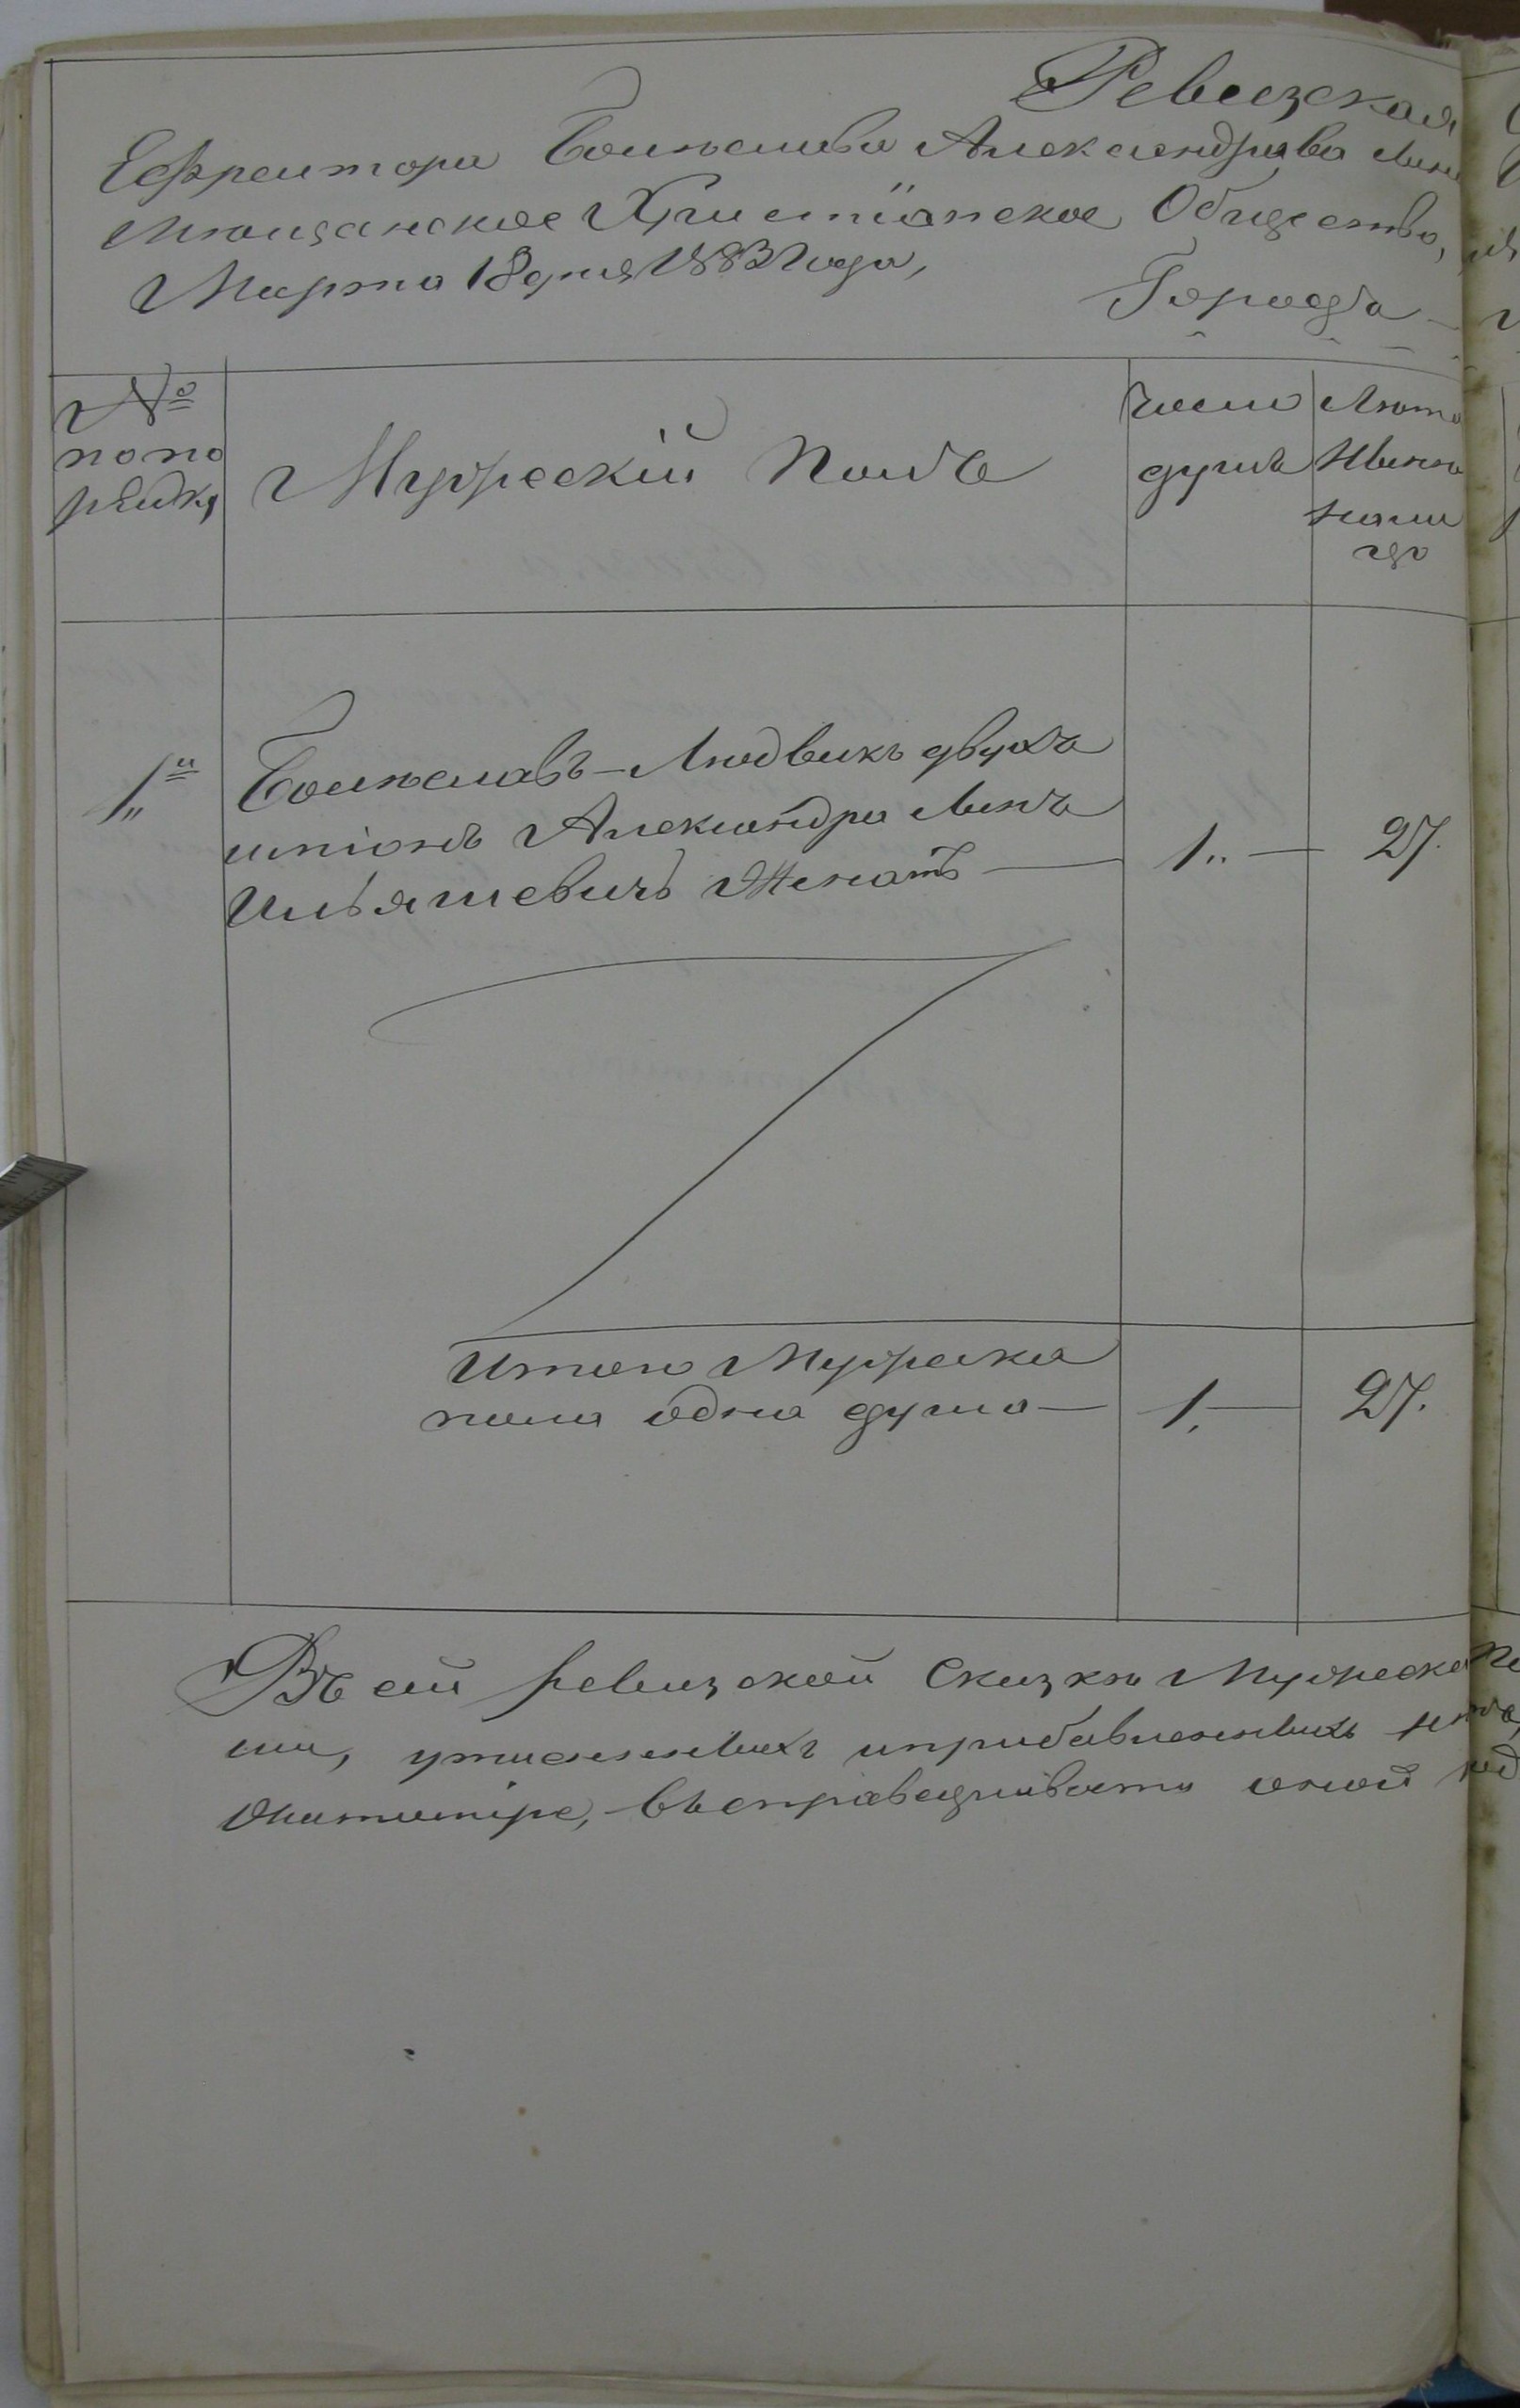 Ревизская
Ефрейтора Болеслава Александрова
Мѣщанское Христіанское Общество,
Марта 18 дня 1883 года, Города
№
по по
рядку
Мужескій Полъ
число
душъ
Лѣта
Нынѣ
на ли
цо
1й Болеславъ-Людвикъ двухъ
имѣнъ Александра Сынъ
Ильяшевичъ Женатъ — 1 — 27.
Итого Мужеска
пола одна душа — 1. — 27.
Въ сей ревизской Сказкѣ Мужеска
утаенныхъ и прибавленныхъ нѣтъ,
въ справедливости оной